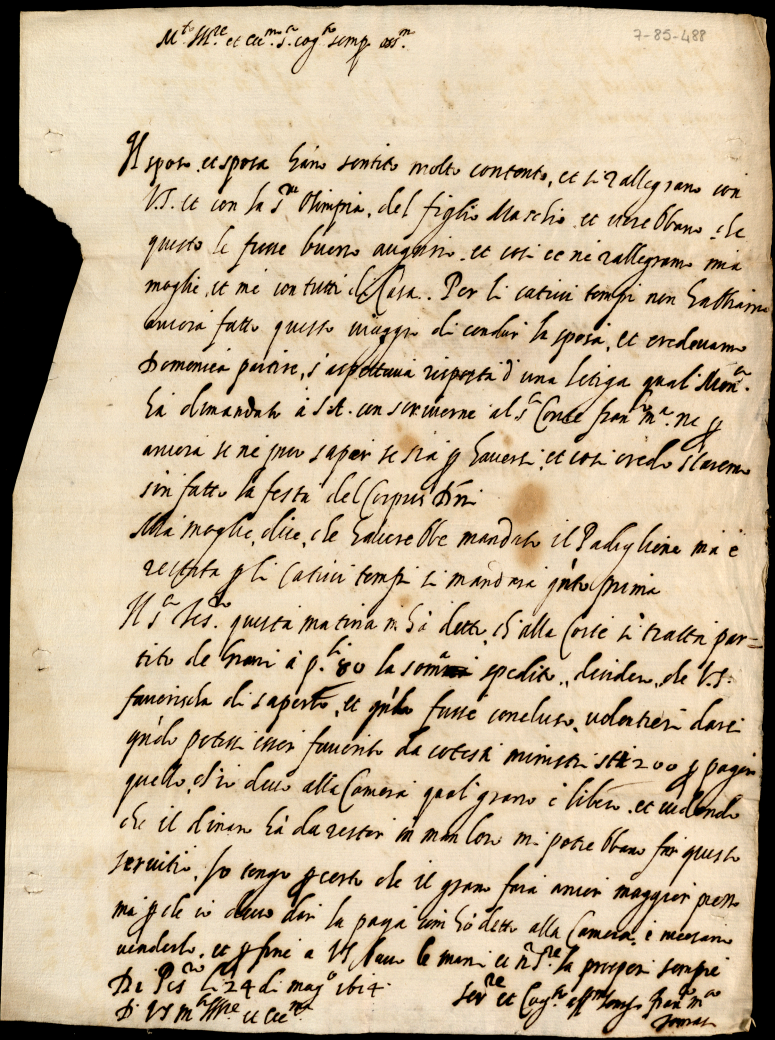 7-85-488
M.to Ill.re et Ecc.mo S.r Cog.to semp. oss.mo
Il sposo et sposa hano sentito molto contento, et si rallegrano con
V.S. et con la S.ra Olimpia, del figlio Maschio et vorebbano che
questo le fusse buono augurio et così ce ne rallegramo mia
moglie et me con tutti di Casa. Per li cativi tempi non habbiamo
ancora fatto questo viaggio di condur la sposa, et credevamo
Domenica partire, s'aspettava risposta d'una letiga qual Mon.
hà dimandato à S.A. con scriverne al S.r Conte Fran.co M.a ne
ancora se ne può saper se sia p haversi, et così credo staremo
sin fatto la festa del Corpus Dñi
Mia moglie, dice, che haverebbe mandato il Padiglione ma è
restata p li cativi tempi si mandarà q.to prima
Il S.r questa matina m'hà detto, ch'alla Corte si tratta par=
tito de Grani à p.li 80 la soma spedito, desidero, che V.S.
favorisca di saperlo, et q.do fusse concluso, volentieri darei
q.do potessi esser favorito da cotesti ministri 200 p pagar
quello, ch'io devo alla Camera qual grano è libero et vedendo
che il dinaro hà da restar in man loro mi potrebbano far questo
servitio, Io tengo p certo che il grano farà ancor maggior prezzo
ma p che io devo dar la paga com' hò detto alla Camera, è necessario
venderlo, et p fine a VS bacio le mani et N.S.re la prosperi sempre
Di Pes.ro li 24 di mag.o 1614
D. VS m.to Ill.re et Ecc.te
Ser.re et Cog.to aff.mo Fran.co M.a